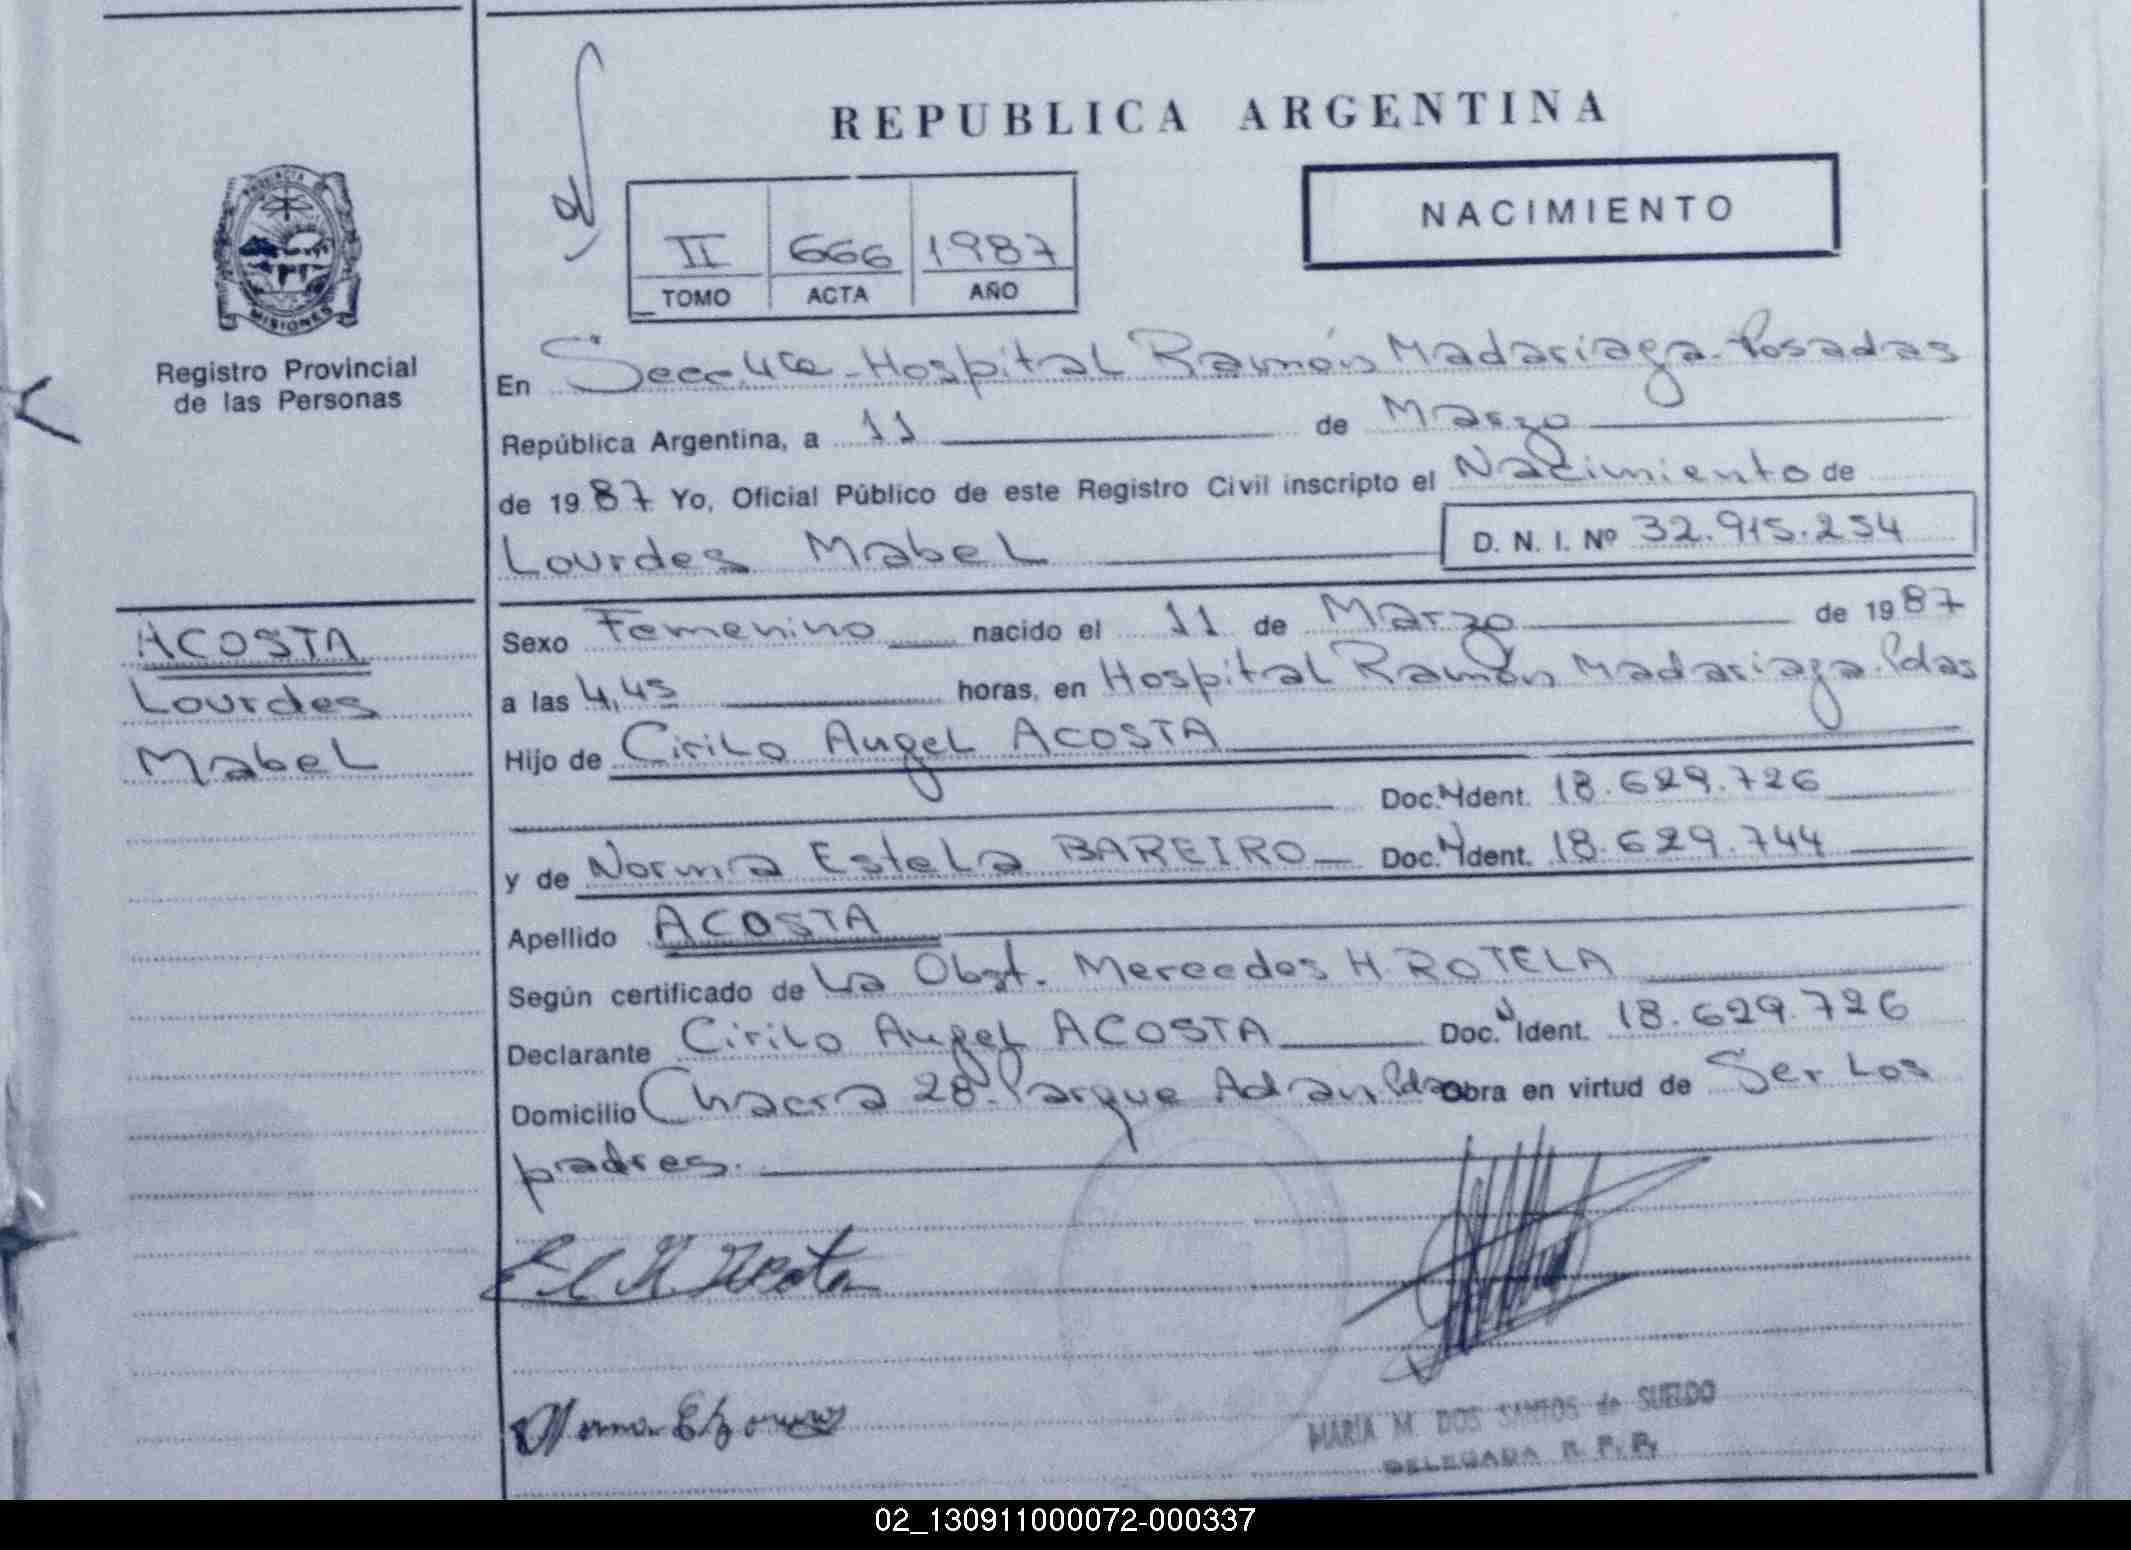 REPUBLICA ARGENTINA
NACIMIENTO
II 666 1987
TOMO ACTA AÑO
PROVINCIA
MISIONES
Registro Provincial
de las Personas
En Secc. 4ta - Hospital Ramón Madariaga - Posadas
República Argentina, a 11 de Marzo
de 1987 Yo, Oficial Público de este Registro Civil inscripto el Nacimiento de
Lourdes Mabel D. N. I. Nº 32.915.254
ACOSTA
Lourdes
Mabel
Sexo Femenino nacido el 11 de Marzo de 1987
a las 4,45 horas, en Hospital Ramón Madariaga. Pdas
Hijo de Cirilo Angel ACOSTA
Doc. N Ident. 18.629.726
y de Norma Estela BAREIRO Doc. N Ident. 18.629.744
Apellido ACOSTA
Según certificado de La Obst. Mercedes H. ROTELA
Declarante Cirilo Angel ACOSTA Doc. N Ident. 18.629.726
Domicilio Chacra 28. Parque Adam, Pdas Obra en virtud de Ser Los
padres.
Acosta
Norma
MARIA M. DOS SANTOS de SUELDO
DELEGADA R. P. P.
02_130911000072-000337